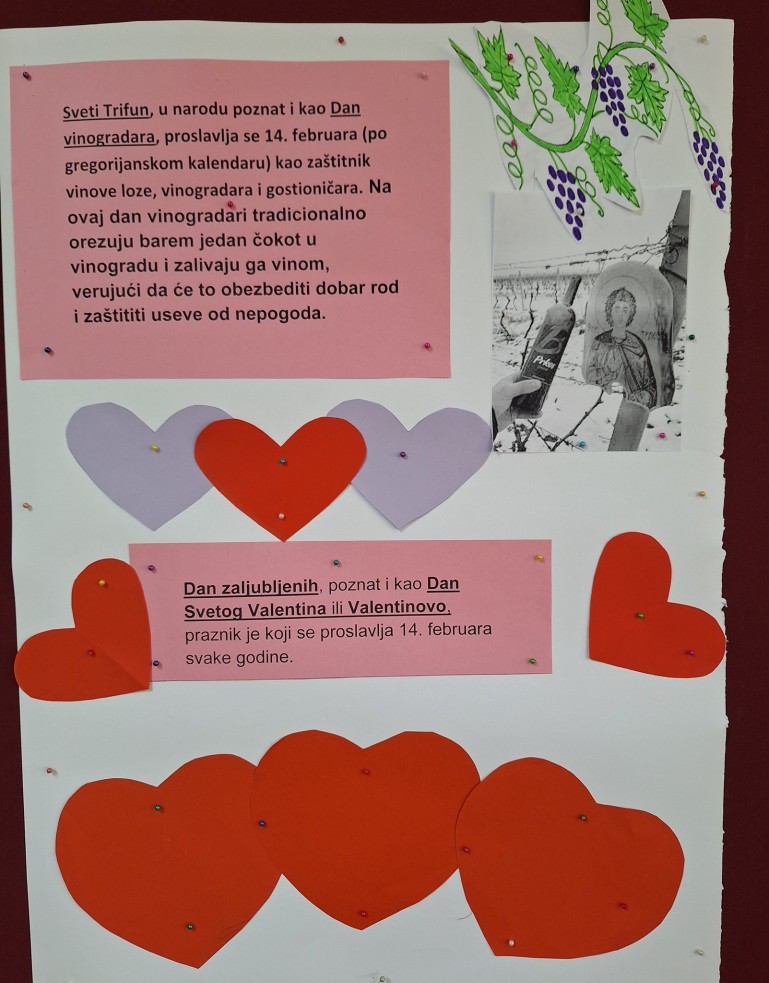 Sveti Trifun, u narodu poznat i kao Dan
vinogradara, proslavlja se 14. februara (po
gregorijanskom kalendaru) kao zaštitnik
vinove loze, vinogradara i gostioničara. Na
ovaj dan vinogradari tradicionalno
orezuju barem jedan čokot u
vinogradu i zalivaju ga vinom,
verujući da će to obezbediti dobar rod
i zaštititi useve od nepogoda.
Dan zaljubljenih, poznat i kao Dan
Svetog Valentina ili Valentinovo,
praznik je koji se proslavlja 14. februara
svake godine.